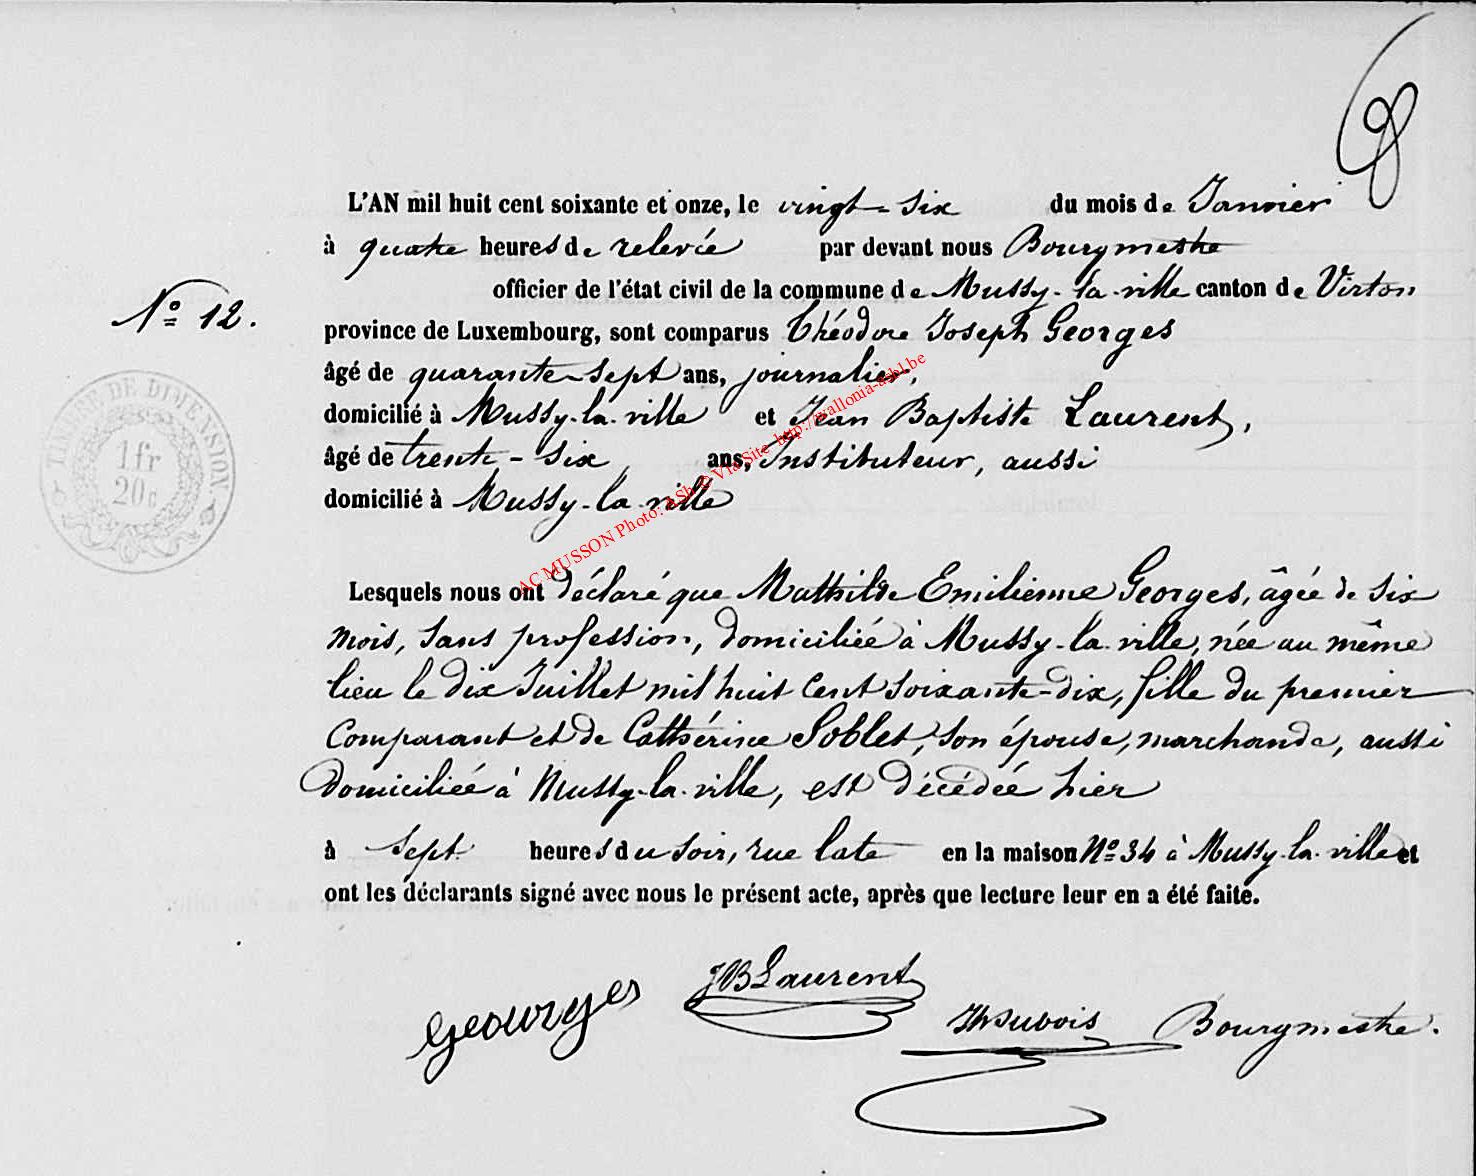 L'AN mil huit cent soixante et onze, le vingt-six du mois de Janvier
à quatre heures de relevée par devant nous Bourgmestre
officier de l'état civil de la commune de Mussy-la-ville canton de Virton
N° 12.
province de Luxembourg, sont comparus Théodore Joseph Georges
âgé de quarante-sept ans, journalier,
domicilié à Mussy-la-ville et Jean Baptiste Laurent,
âgé de trente-six ans, Instituteur, aussi
domicilié à Mussy-la-ville
TIMBRE DE DIMENSION
1 fr
20 c
AC MUSSON Photo: ASbl © Via Site http://wallonia-asbl.be
Lesquels nous ont déclaré que Mathilde Emilienne Georges, âgée de six
mois, sans profession, domiciliée à Mussy-la-ville, née au même
lieu le dix Juillet mil huit cent soixante-dix, fille du premier
comparant et de Cathérine Goblet, son épouse, marchande, aussi
domiciliée à Mussy-la-ville, est décédée hier
à sept heures du soir, rue late en la maison N° 34 à Mussy-la-ville et
ont les déclarants signé avec nous le présent acte, après que lecture leur en a été faite.
Geourges
JBLaurent
Dubois Bourgmestre.